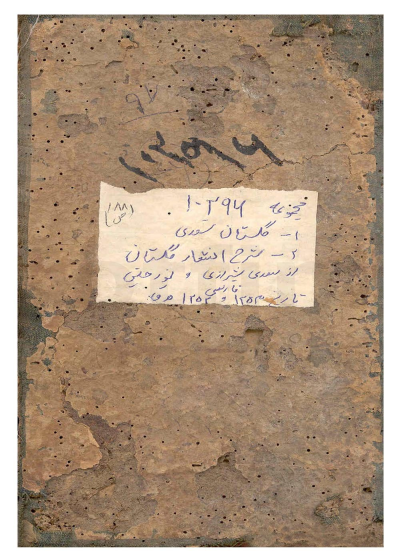 ۹۷
۱۰۳۹۶
مجموعه ۱۰۳۹۶
(۸۸ ص)
۱- گلستان سعدی
۲- شرح اشعار گلستان
از سعدی شیرازی و
فارسی
۱۲۵۳ و ۱۲۵۴